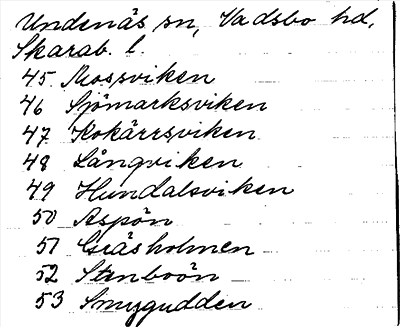 Undenäs sn, Vadsbo hd,
Skarab. l.
45 Mossviken
46 Sjömarksviken
47 Kokärrsviken
48 Långviken
49 Hundalsviken
50 Aspön
51 Gräsholmen
52 Stenboön
53 Smygudden